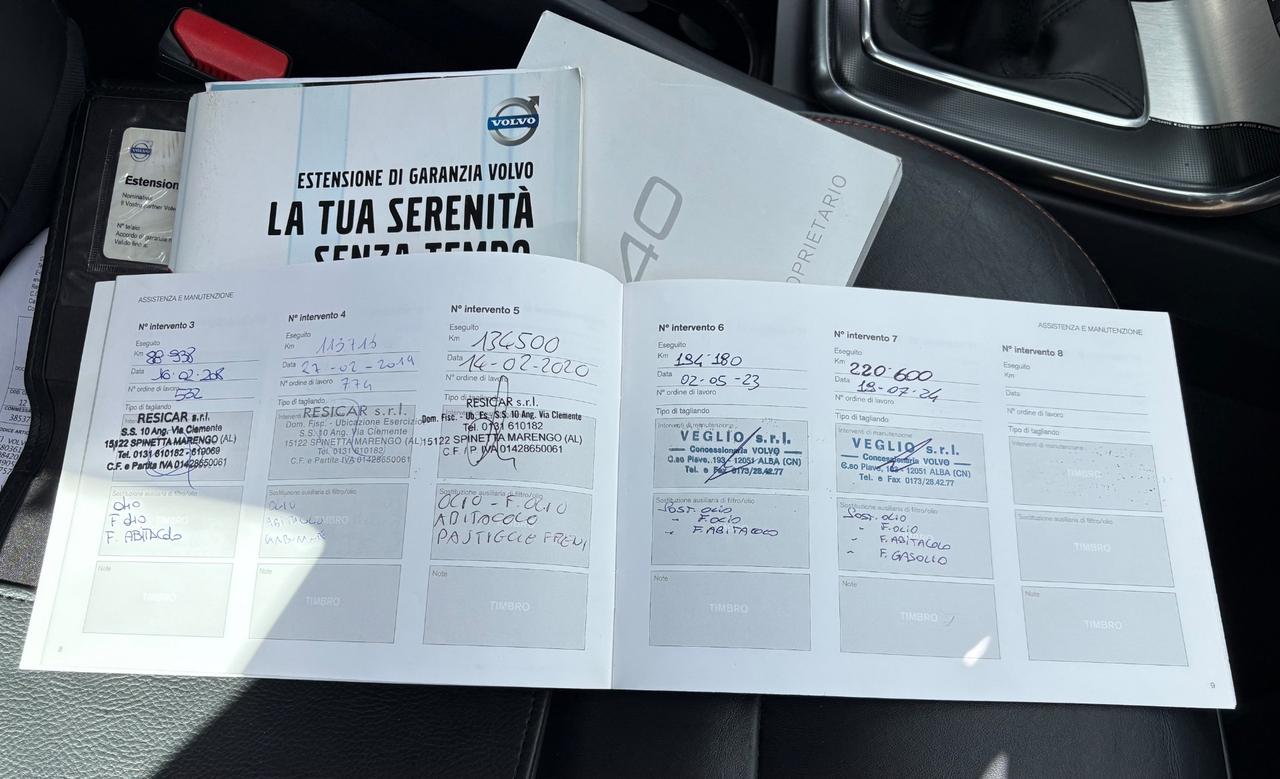 VOLVO
ESTENSIONE DI GARANZIA VOLVO
LA TUA SERENITÀ
SENZA TEMPO
VOLVO
Estension
Nominativo
Il Vostro partner Volvo
N° telaio
Accordo di garanzia n
Valido fino a:
40
OPRIETARIO
ASSISTENZA E MANUTENZIONE
N° intervento 3
Eseguito
Km 88 938
Data
N° ordine di lavoro
532
Tipo di tagliando
RESICAR s.r.l.
S.S. 10 Ang. Via Clemente
15122 SPINETTA MARENGO (AL)
Tel. 0131 610182 - 619069
C.F. e Partita IVA 01428650061
Sostituzione ausiliaria di filtro/olio
OLIO
F. OLIO
F. ABITACOLO
Note
TIMBRO
8
N° intervento 4
Eseguito
Km 113715
Data 27-02-2019
N° ordine di lavoro
774
Tipo di tagliando
RESICAR s.r.l.
Dom. Fisc. - Ubicazione Esercizio
S.S. 10 Ang. Via Clemente
15122 SPINETTA MARENGO (AL)
Tel. 0131 610182
C.F. e Partita IVA 01428650061
Sostituzione ausiliaria di filtro/olio
OLIO
ABITACOLO
Note
TIMBRO
N° intervento 5
Eseguito
Km 134500
Data 14-02-2020
N° ordine di lavoro
Tipo di tagliando
RESICAR s.r.l.
Dom. Fisc. - Ub. Es. S.S. 10 Ang. Via Clemente
Tel. 0131 610182
15122 SPINETTA MARENGO (AL)
C.F. / P. IVA 01428650061
Sostituzione ausiliaria di filtro/olio
OLIO - F. OLIO
ABITACOLO
PASTIGLIE FRENI
Note
TIMBRO
N° intervento 6
Eseguito
Km 194·180
Data 02-05-23
N° ordine di lavoro
Tipo di tagliando
Interventi di manutenzione
VEGLIO s.r.l.
Concessionaria VOLVO
C.so Piave, 193 - 12051 ALBA (CN)
Tel. e Fax 0173/28.42.77
Sostituzione ausiliaria di filtro/olio
SOST. OLIO
" F. OLIO
" F. ABITACOLO
Note
TIMBRO
N° intervento 7
Eseguito
Km 220·600
Data 19-07-24
N° ordine di lavoro
Tipo di tagliando
Interventi di manutenzione
VEGLIO s.r.l.
Concessionaria VOLVO
C.so Piave, 193 - 12051 ALBA (CN)
Tel. e Fax 0173/28.42.77
Sostituzione ausiliaria di filtro/olio
SOST. OLIO
" F. OLIO
" F. ABITACOLO
" F. GASOLIO
Note
TIMBRO
ASSISTENZA E MANUTENZIONE
N° intervento 8
Eseguito
Km
Data
N° ordine di lavoro
Tipo di tagliando
Interventi di manutenzione
TIMBRO
Sostituzione ausiliaria di filtro/olio
TIMBRO
Note
TIMBRO
9